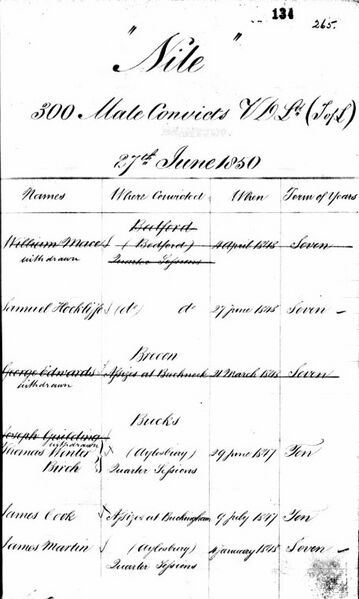 134
265.
"Nile"
300 Male Convicts V D Ld (T of L)
27th June 1850
Names Where Convicted When Term of Years
Bedford
William Mace (Bedford) 4 April 1848 Seven
withdrawn Quarter Sessions
Samuel Hockliffe (do do 27 June 1848 Seven
Brecon
George Edwards Assizes at 21 March 1848 Seven
withdrawn
Bucks
Joseph Guilding
withdrawn
Thomas Winter (Aylesbury) 29 June 1847 Ten
Birch Quarter Sessions
James Cook Assizes at Buckingham 9 July 1847 Ten
James Martin (Aylesbury) 4 January 1848 Seven
Quarter Sessions